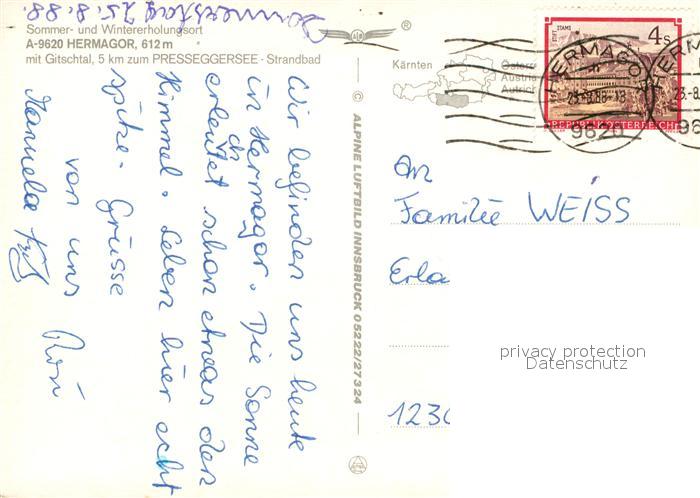 Sommer- und Wintererholungsort
A-9620 HERMAGOR, 612 m
mit Gitschtal, 5 km zum PRESSEGGERSEE · Strandbad
25. 8. 88.
Wir befinden uns heute
in Hermagor. Die Sonne
schon etwas den
Himmel. Leben hier echt
spitze. Grüsse
von uns
Manuela
© ALPINE LUFTBILD INNSBRUCK 05222/27324
®
Kärnten
Österr
Austria
Autric
STIFT STAMS
4 S
REPUBLIK ÖSTERREICH
HERMAGOR
9620
HERM
23.-8.
96
An
Familie WEISS
Erla
1230
privacy protection
Datenschutz